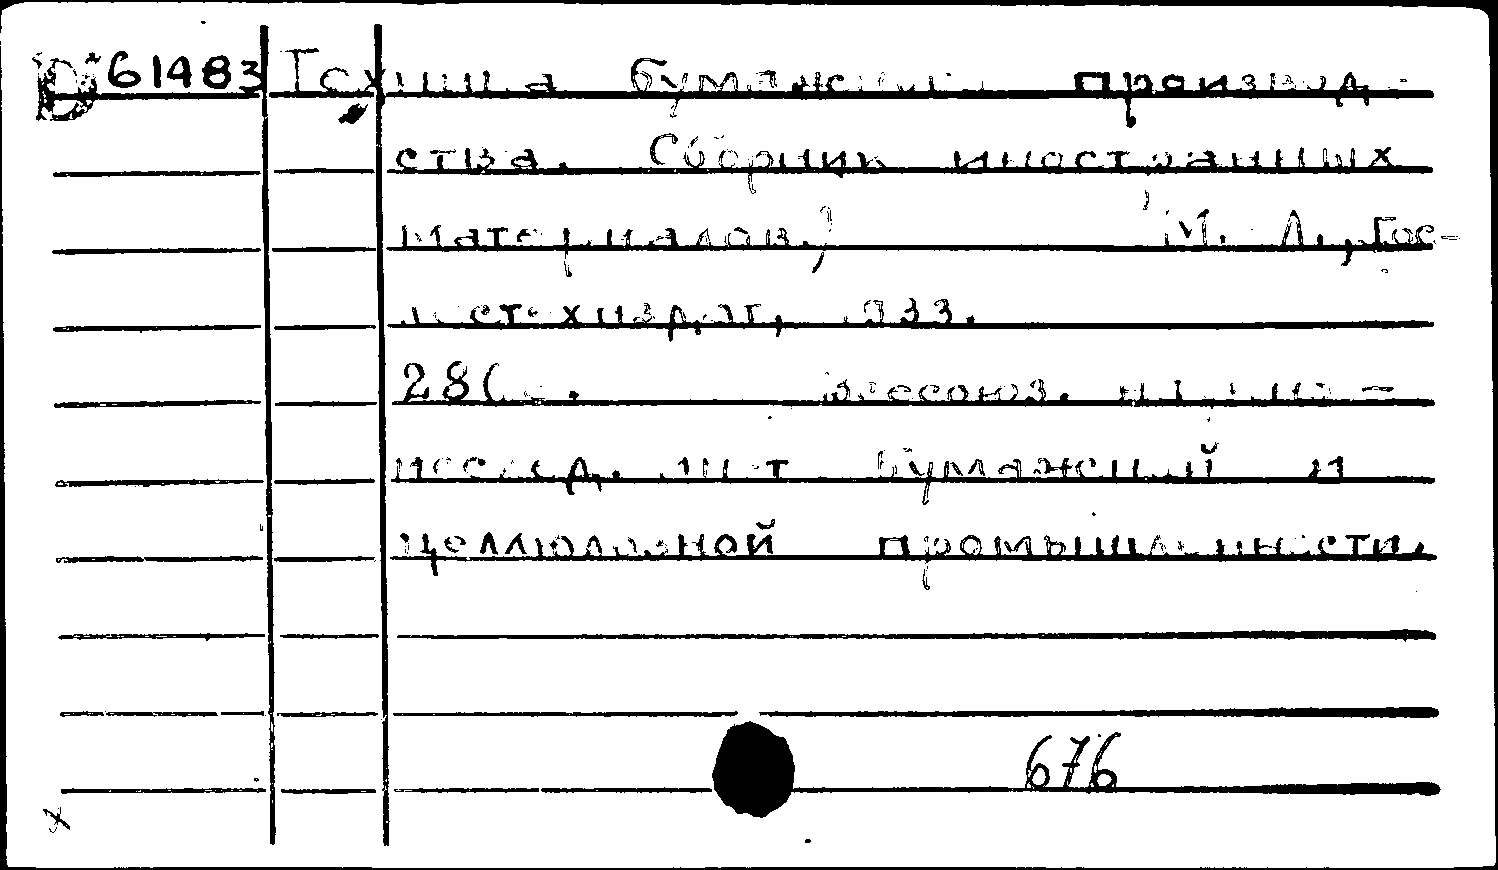 61483 Техника бумажного производ-
ства. Сборник иностранных
материалов. М. Л., Гос-
лестехиздат, 1933.
Всесоюз. научно-
исслед. ин-т бумажной и
целлюлозной промышленности.
676